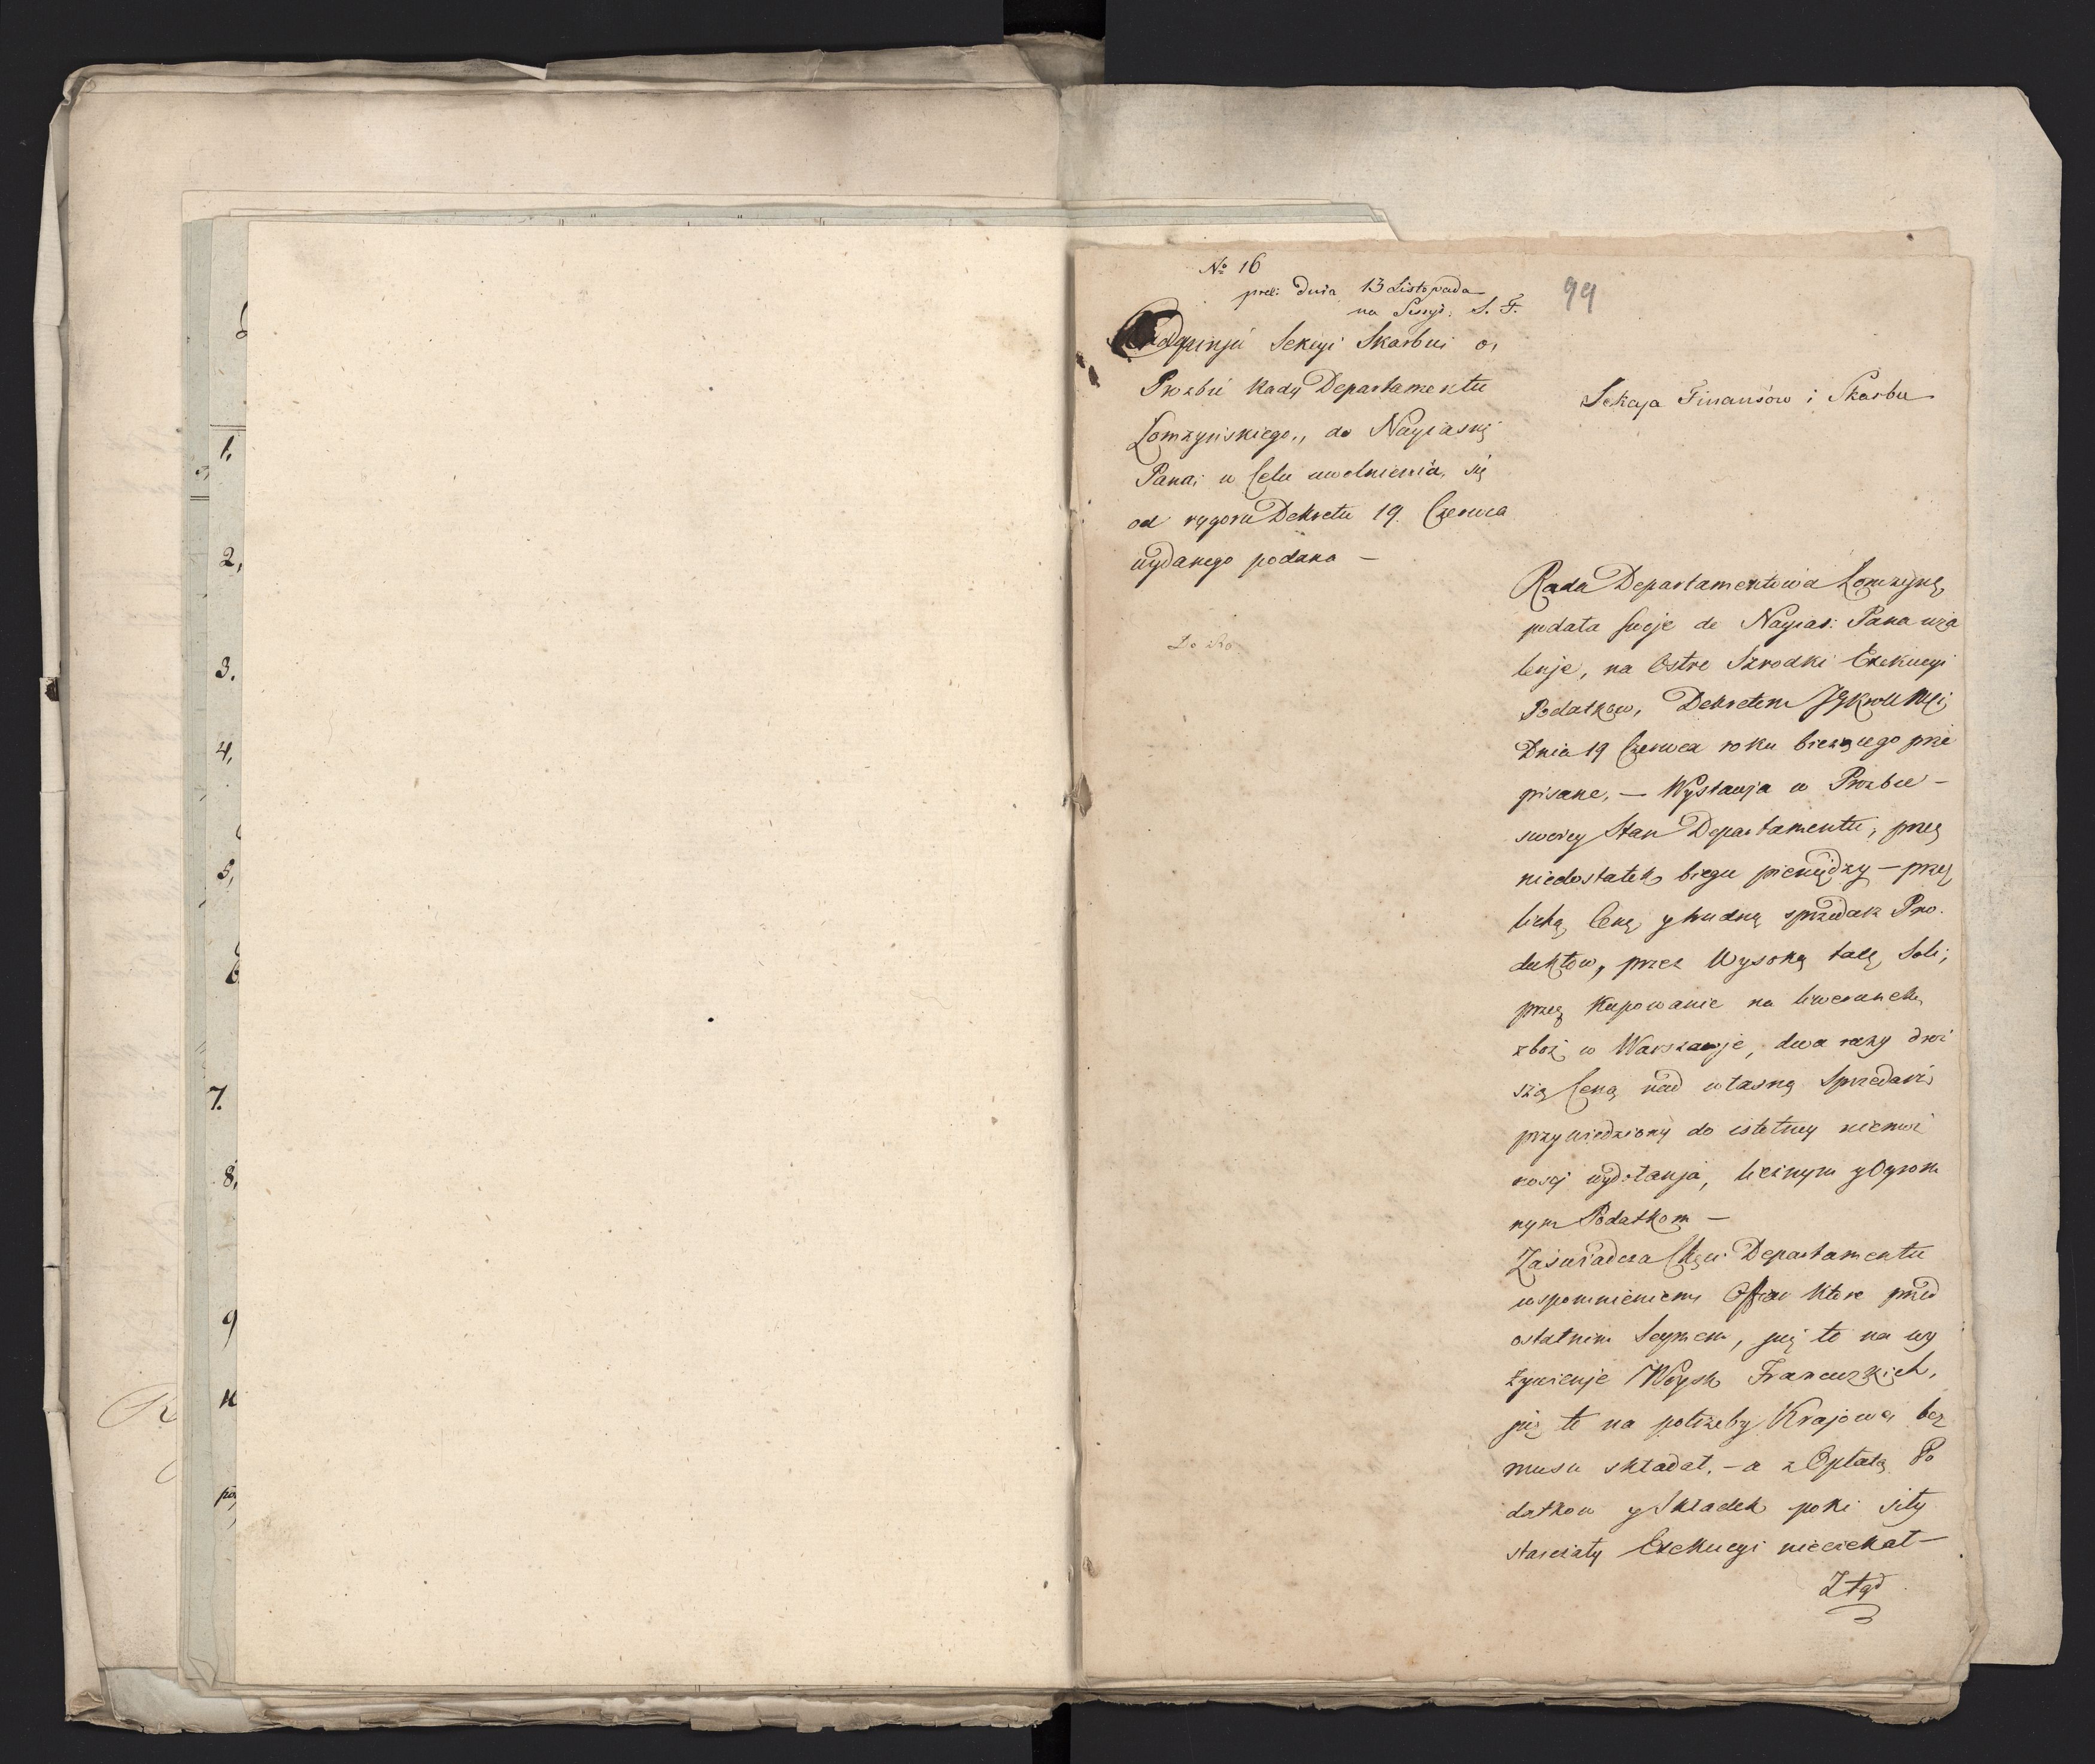 1.
2,
3.
4,
5,
6
7.
8,
9
R
№ 16
prez: Dnia 13 Listopada
na Sessyi: S. F.
99
Opinja Sekcyi Skarbu o
Prozbie Rady Departamentu
Łomzynskiego,, do Nayiasnj
Pana, w Celu uwolnienia, się
od rygoru Dekretu 19. Czerwca
wydanego podana —
Sekcya Finansow i Skarbu
Rada Departamentowa Łomzyns,
podała swoje do Nayias: Pana uża
lenje, na Ostre Szrodki Exekucyi
Podatkow, Dekretem JGKrole Mci;
Dnia 19 Czerwca roku biezącego prze
pisane, — Wystawja w Prozbie —
swoiey Stan Departamentu, przez
niedostatek biegu pieniędzy — przez
lichą Cenę y trudną sprzedarz Pro-
duktow, przez Wysoką taxę Soli;
przez Kupowanie na liwerunek
zboż w Warszawje, dwa razy droż
szą Ceną nad własną Sprzedarz,
przywiedziony do istotney niemoż
nosci wydołanja, licznym y Ogrom
nym Podatkom —
Zaświadcza Chęci Departamentu
wspomnieniem Ofiar które przed
ostatnim Seymem, już to na wy
żywienje Woysk Francuzkich,
już to na potrzeby Krajowe bez
musu składał, — a z Opłatą Po
datkow y Składek poki siły
starczały Exekucyi nieczekał —
Ztąd